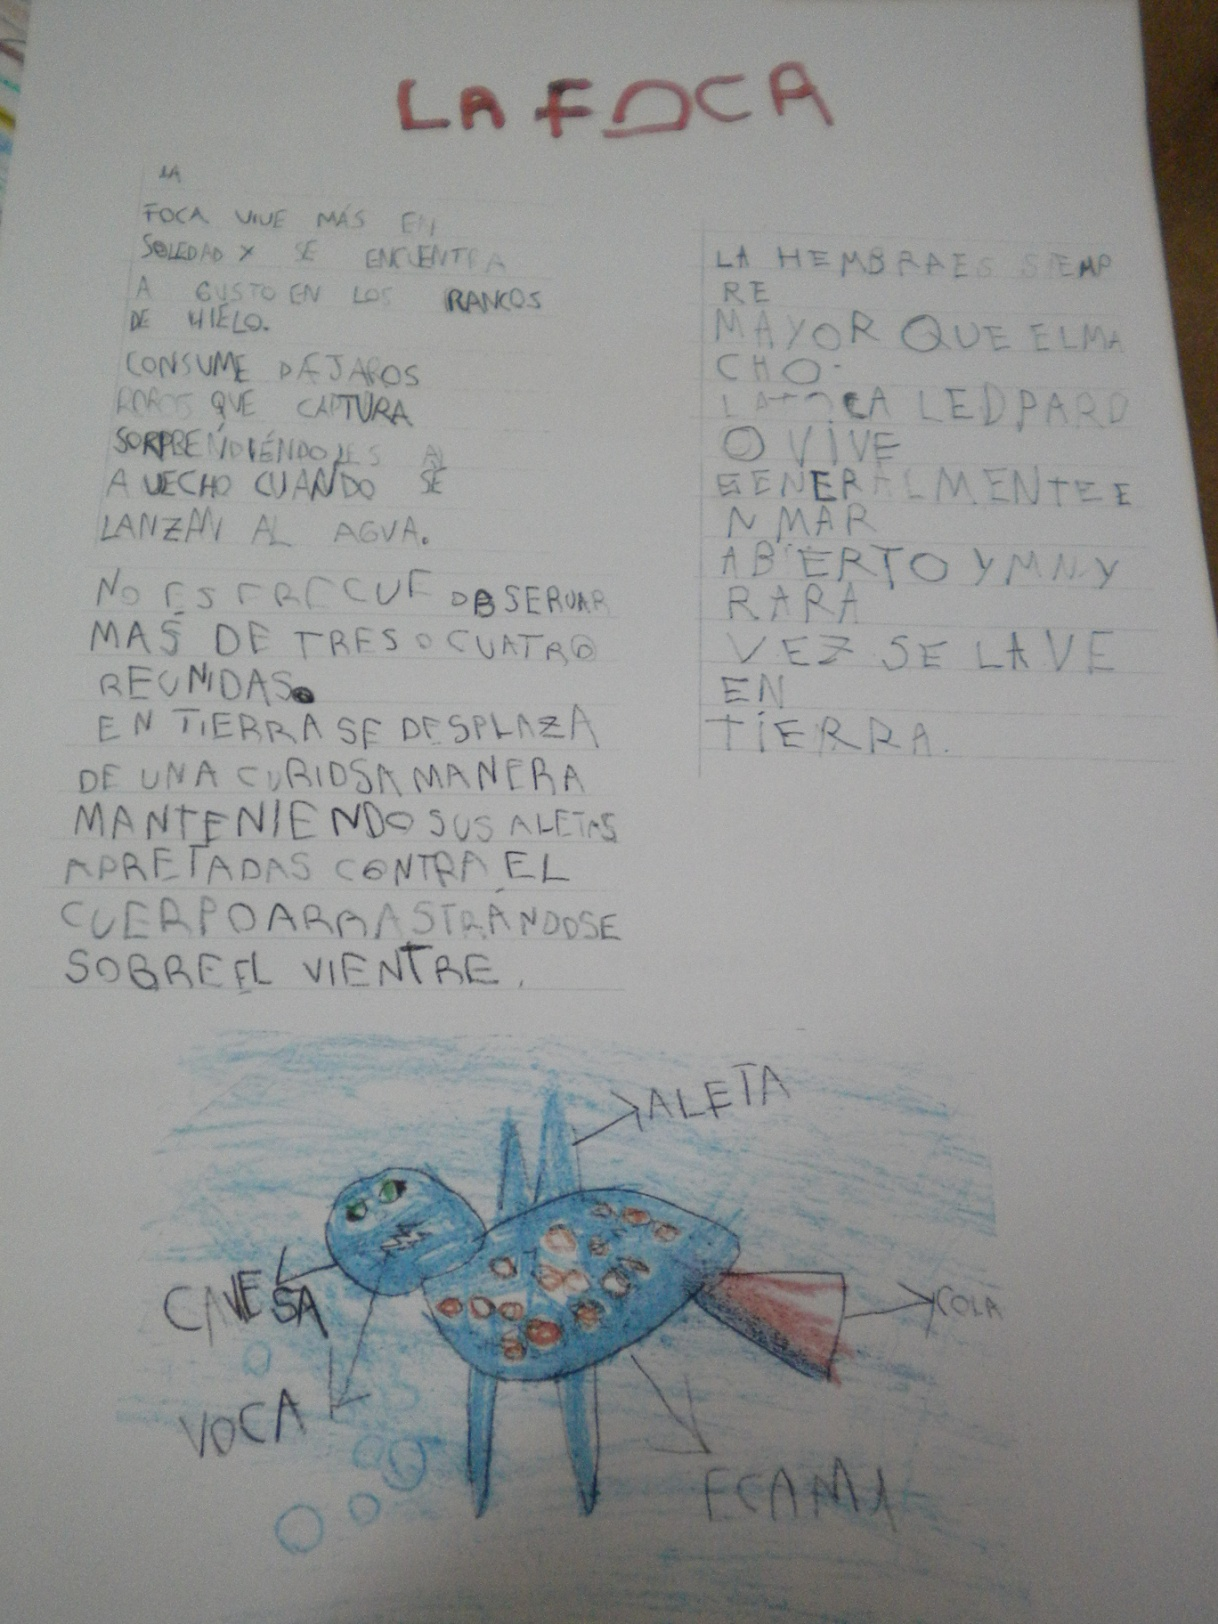 LA FOCA
LA
FOCA VIVE MÁS EN
SOLEDAD Y SE ENCUENTRA
A GUSTO EN LOS RANCOS
DE HIELO.
CONSUME PAJAROS
QUE CAPTURA
SORPRENDIÉNDOLES AL
AUECHO CUANDO SE
LANZAN AL AGUA.
NO ES FRECUE OBSERUAR
MAS DE TRES O CUATRO
REUNIDAS.
EN TIERRA SE DESPLAZA
DE UNA CURIOSA MANERA
MANTENIENDO SUS ALETAS
APRETADAS CONTRA EL
CUERPO ARRASTRÁNDOSE
SOBRE EL VIENTRE.
LA HEMBRA ES SIEMP
RE
MAYOR QUE EL MA
CHO.
LA FOCA LEOPARD
O VIVE
GENERALMENTE E
N MAR
ABIERTO Y MNY
RARA
VEZ SE LA VE
EN
TÍERRA.
ALETA
CAVESA
COLA
VOCA
ECAMA